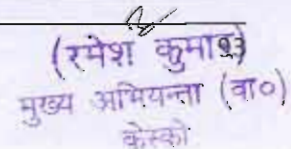 (रमेश कुमार)
93
मुख्य अभियन्ता (वा०)
केस्को